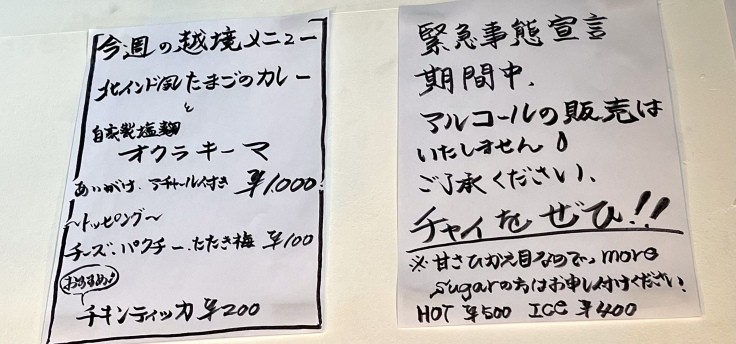 今週の越境メニュー
北インド風たまごのカレー
と
自家製塩麹
オクラキーマ
あいがけ、アチャール付き ¥1,000
〜トッピング〜
チーズ、パクチー、たたき梅 ¥100
おすすめ♪
チキンティッカ ¥200
緊急事態宣言
期間中、
アルコールの販売は
いたしません。
ご了承ください、
チャイをぜひ!!
※甘さひかえ目なので、more
sugarの方はお申し付けください!
HOT ¥500 ICE ¥400